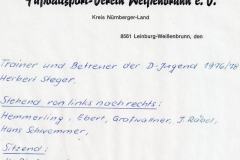 Fußballsport-Verein Weißenbrunn e. V.
Kreis Nürnberger-Land
8561 Leinburg-Weißenbrunn, den
Trainer und Betreuer der D-Jugend 1976/78
Herbert Steger.
Stehend von links nach rechts:
Hemmerling, Ebert, Großwallner, J. Räbel,
Hans Schwemmer,
Sitzend: